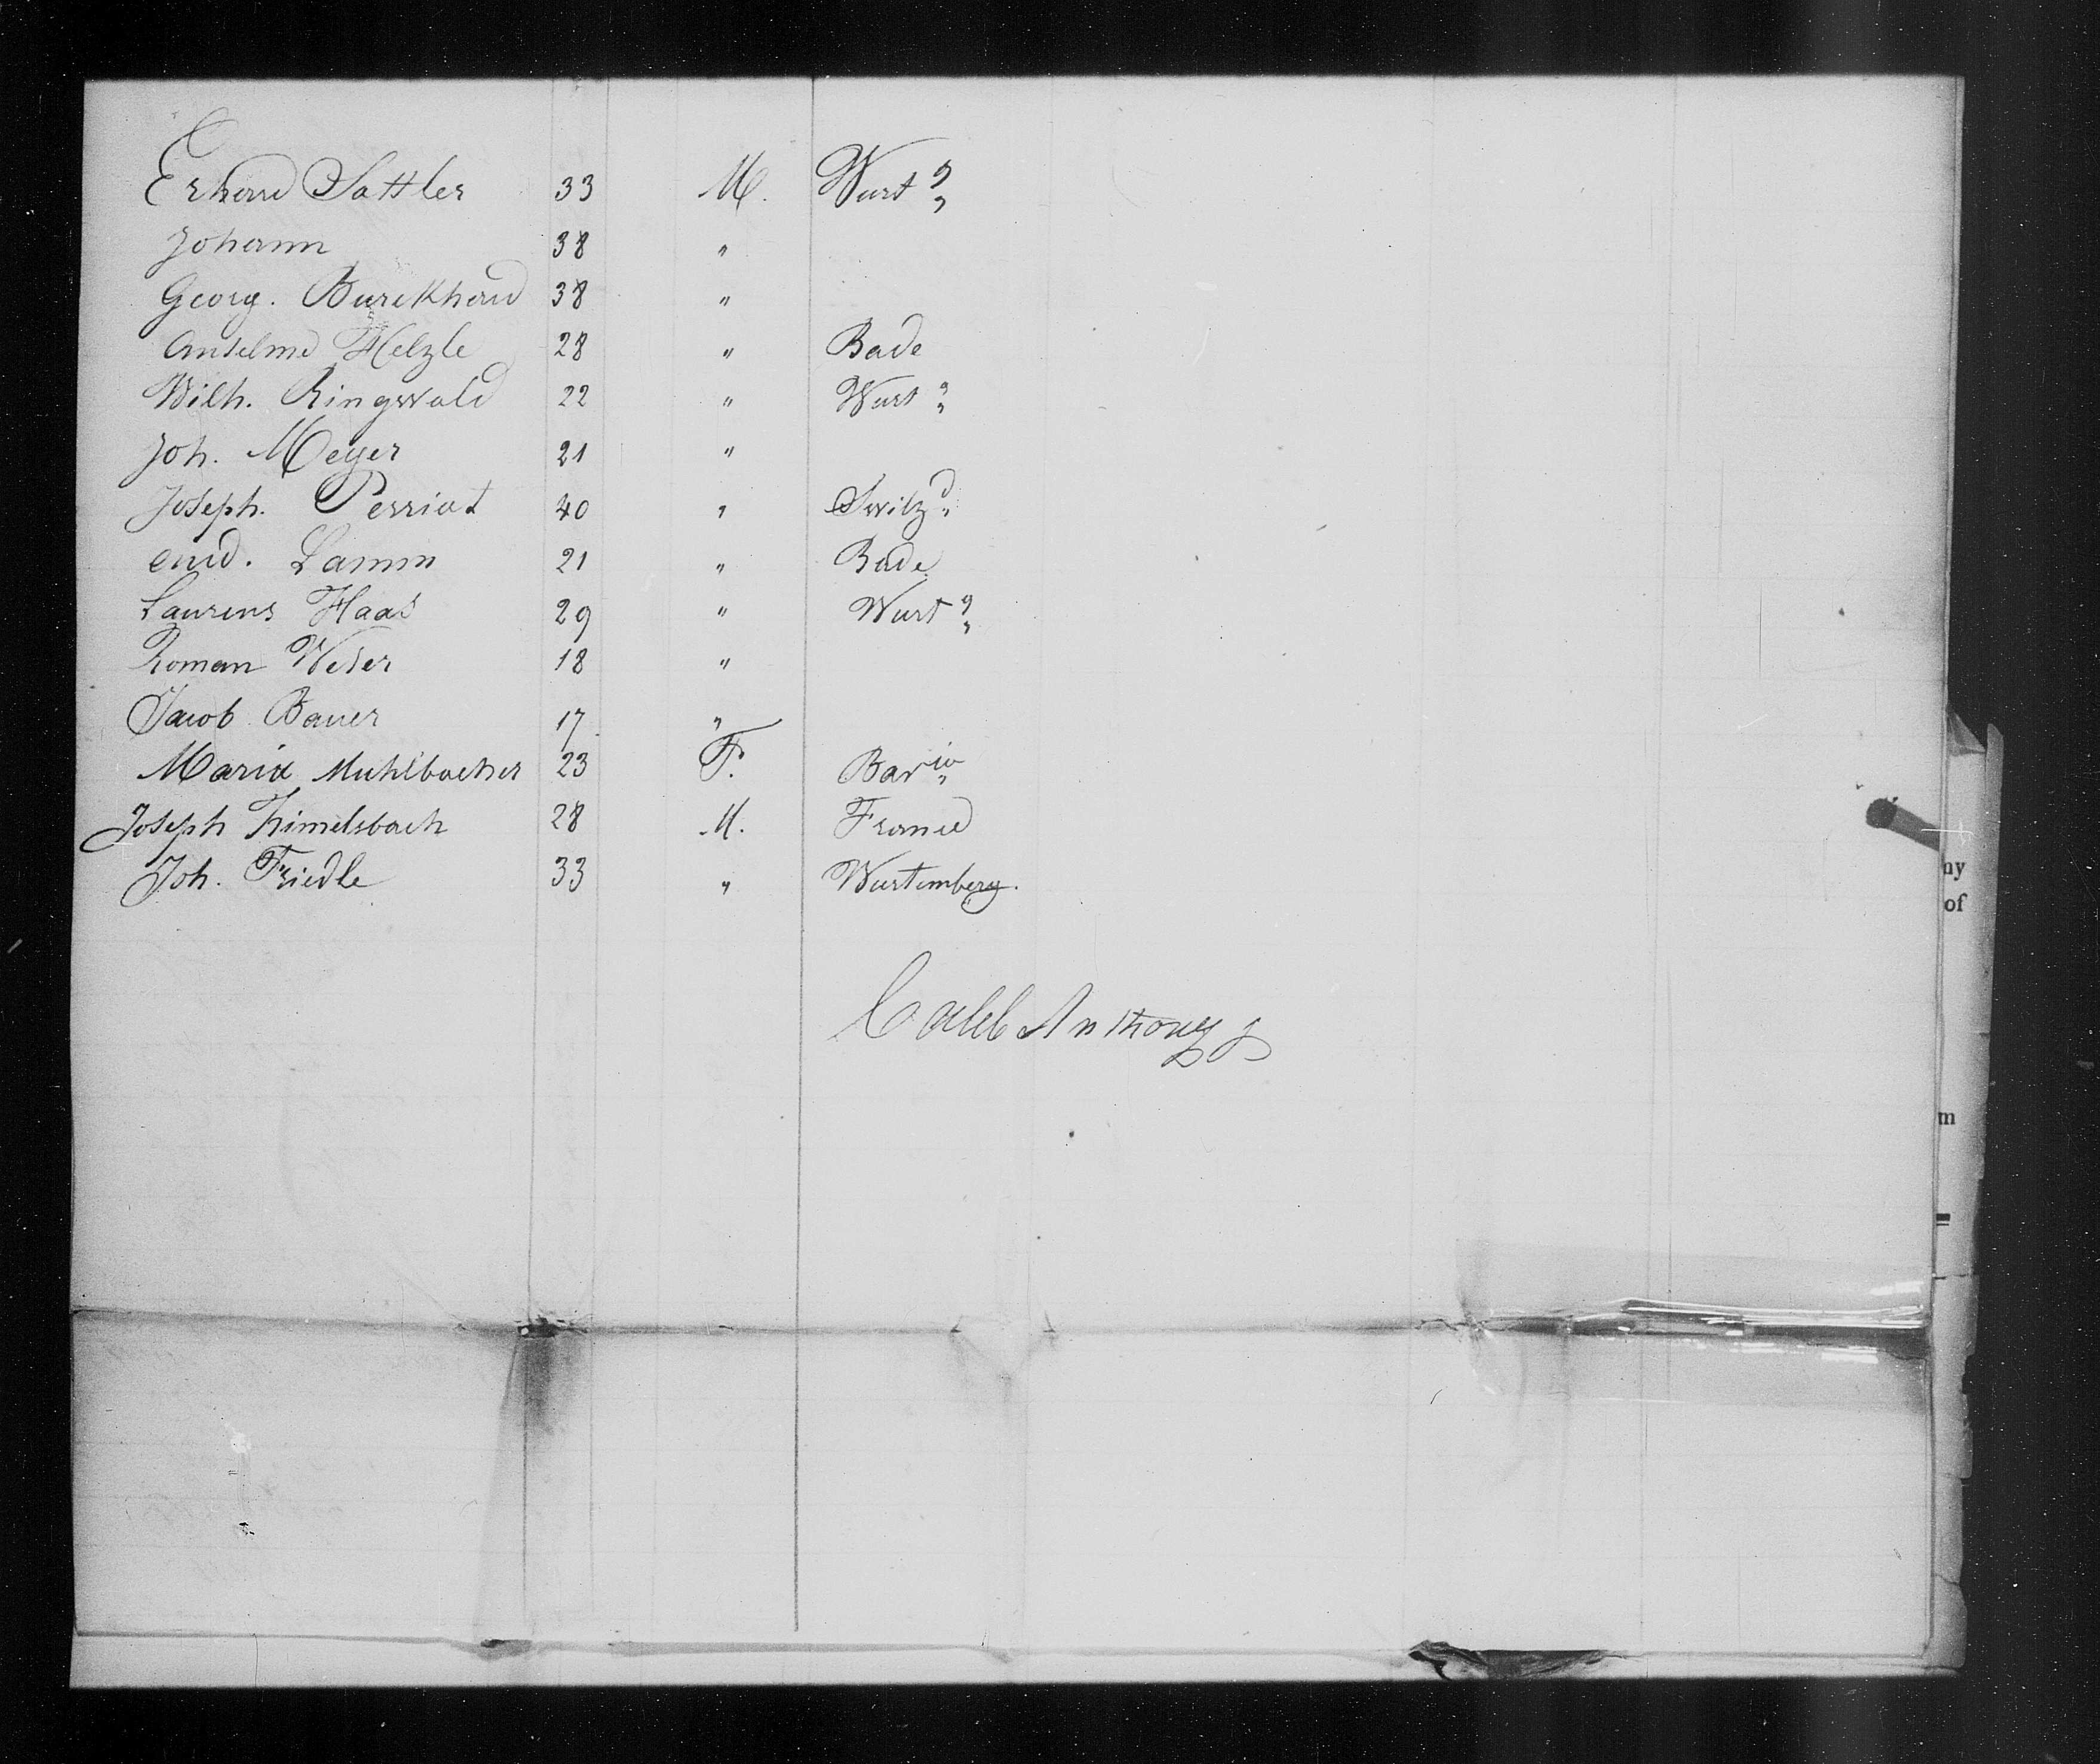 Erhard Sattler 33 M. Wurt g
Johann 38 "
Georg. Burckhard 38 "
Anselme Helzle 28 " Bade
Wilh. Ringwald 22 " Wurt g
Joh. Meyer 21 "
Joseph. Perriat 40 " Switz d
Lamm 21 " Bade
Laurens Haas 29 " Wurt g
Roman Weser 18 "
Jacob Bauer 17 "
Maria Muhlbacher 23 F. Bav ia
Joseph 28 M. France
Joh. Friedle 33 " Wurtemberg.
Caleb Anthony Jr
ny
of
m